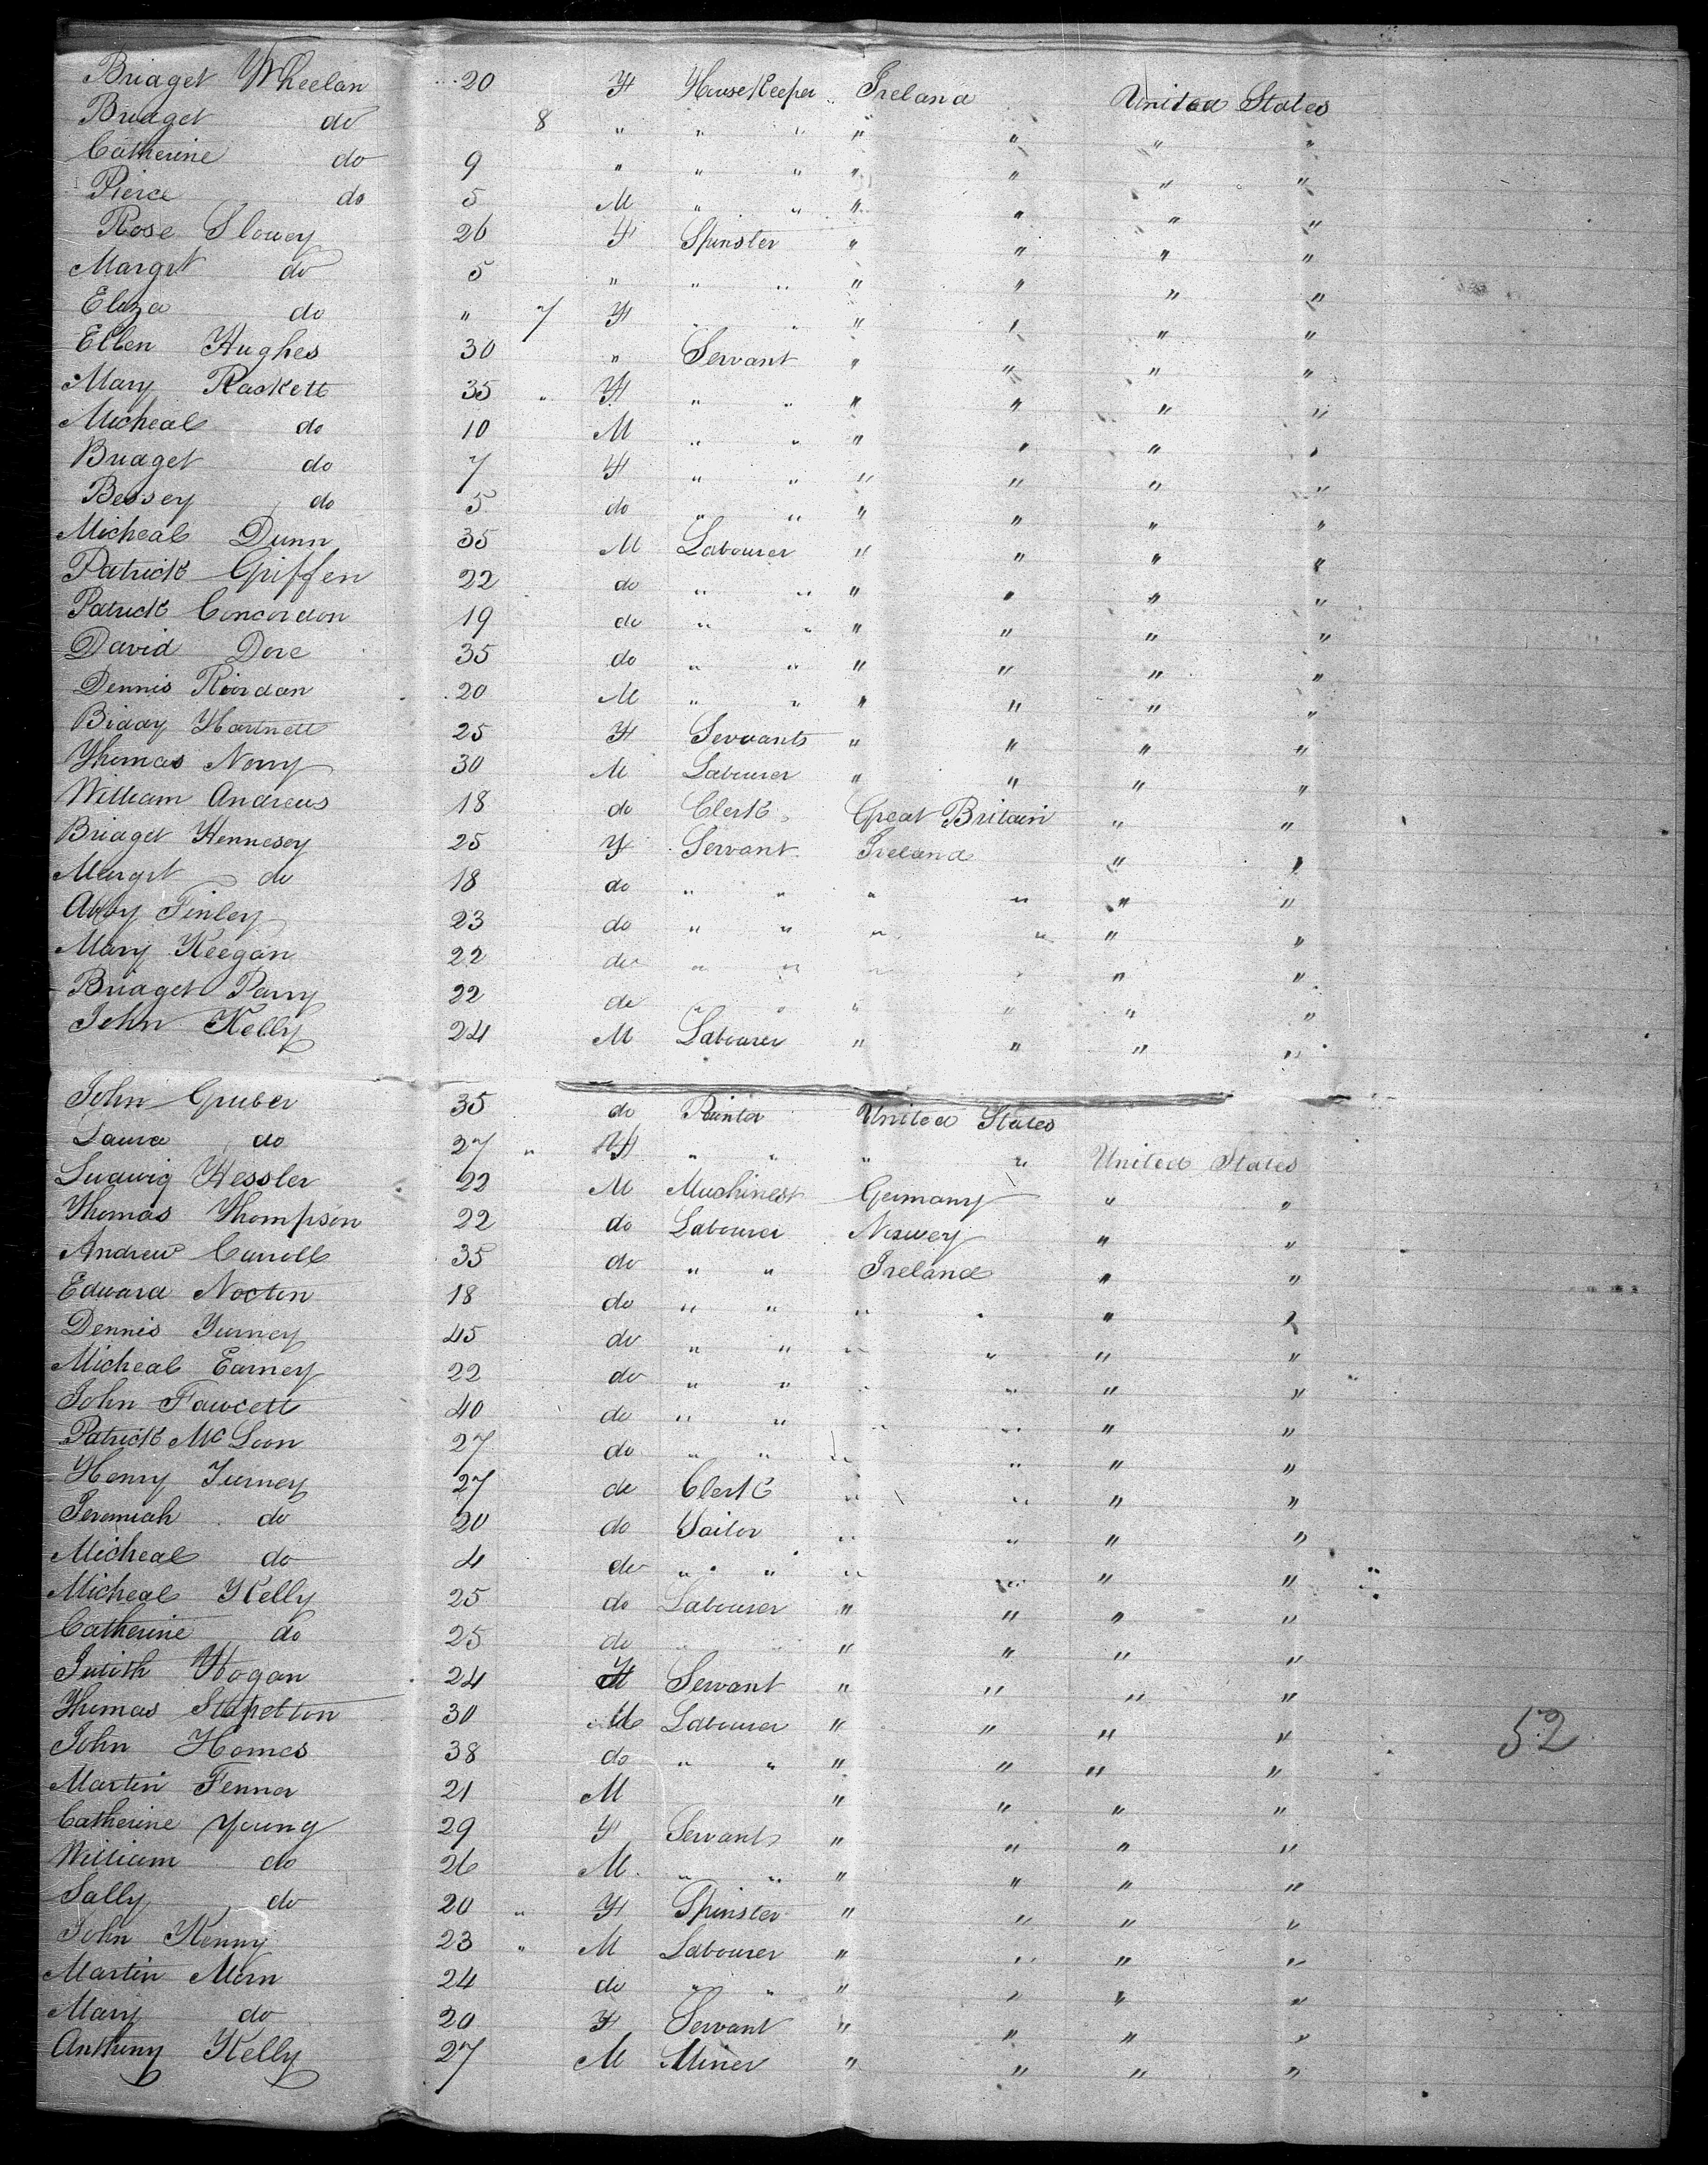 Bridget Wheelan 20 F HouseKeeper Ireland United States
Bridget do 8 " " " " " " "
Catherine do 9 " " " " " " "
Pierce do 5 M " " " " " "
Rose Slowey 26 F Spinster " " " "
Margrt do 5 " " " " " " "
Eliza do " 7 F " " " " " "
Ellen Hughes 30 " Servant " " " "
Mary Rackett 35 " F " " " " " "
Micheal do 10 M " " " " " "
Bridget do 7 F " " " " " "
Bessey do 5 do " " " " " "
Micheal Dunn 35 M Labourer " " " "
Patrick Griffen 22 do " " " " " "
Patrick Concordon 19 do " " " " " "
David Dore 35 do " " " " " "
Dennis Riordan 20 M " " " " " "
Bidday Hartnett 25 F Servants " " " "
Thomas Norry 30 M Labourer " " " "
William Andrews 18 do Clerk Great Britain " "
Bridget Hennesey 25 F Servant Ireland " "
Margrt do 18 do " " " " " "
Abby Finley 23 do " " " " " "
Mary Keegan 22 do " " " " "
Bridget Parry 22 do " " " " " "
John Kelly 24 M Labourer " " " "
John Gruber 35 do Painter United States
Laura do 27 " F " " " " United States
Ludwig Hessler 22 M Machinest Germany " "
Thomas Thompson 22 do Labourer Norwey " "
Andrew Carroll 35 do " " Ireland " "
Edward Nocten 18 do " " " " " "
Dennis Turney 45 do " " " " " "
Micheal Earney 22 do " " " " " "
John Fawcett 40 do " " " " " "
Patrick McLoon 27 do " " " " " "
Henry Turney 27 do Clerk " " " "
Jeremiah do 20 do Sailor " " " "
Micheal do 4 do " " " " " "
Micheal Kelly 25 do Labourer " " " "
Catherine do 25 do " " " " " "
Judith Hogan 24 F Servant " " " "
Thomas Stapelton 30 M Labourer " " " "
52
John Homes 38 do " " " " " "
Martin Fenner 21 M " " " "
Catherine Young 29 F Servants " " " "
William do 26 M " " " " " "
Sally do 20 " F Spinster " " " "
John Kenny 23 " M Labourer " " " "
Martin Morn 24 do " " " " " "
Mary do 20 F Servant " " " "
Anthony Kelly 27 M Miner " " " "